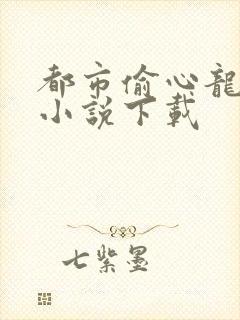 都市偷心龍
小說下載
七紫墨